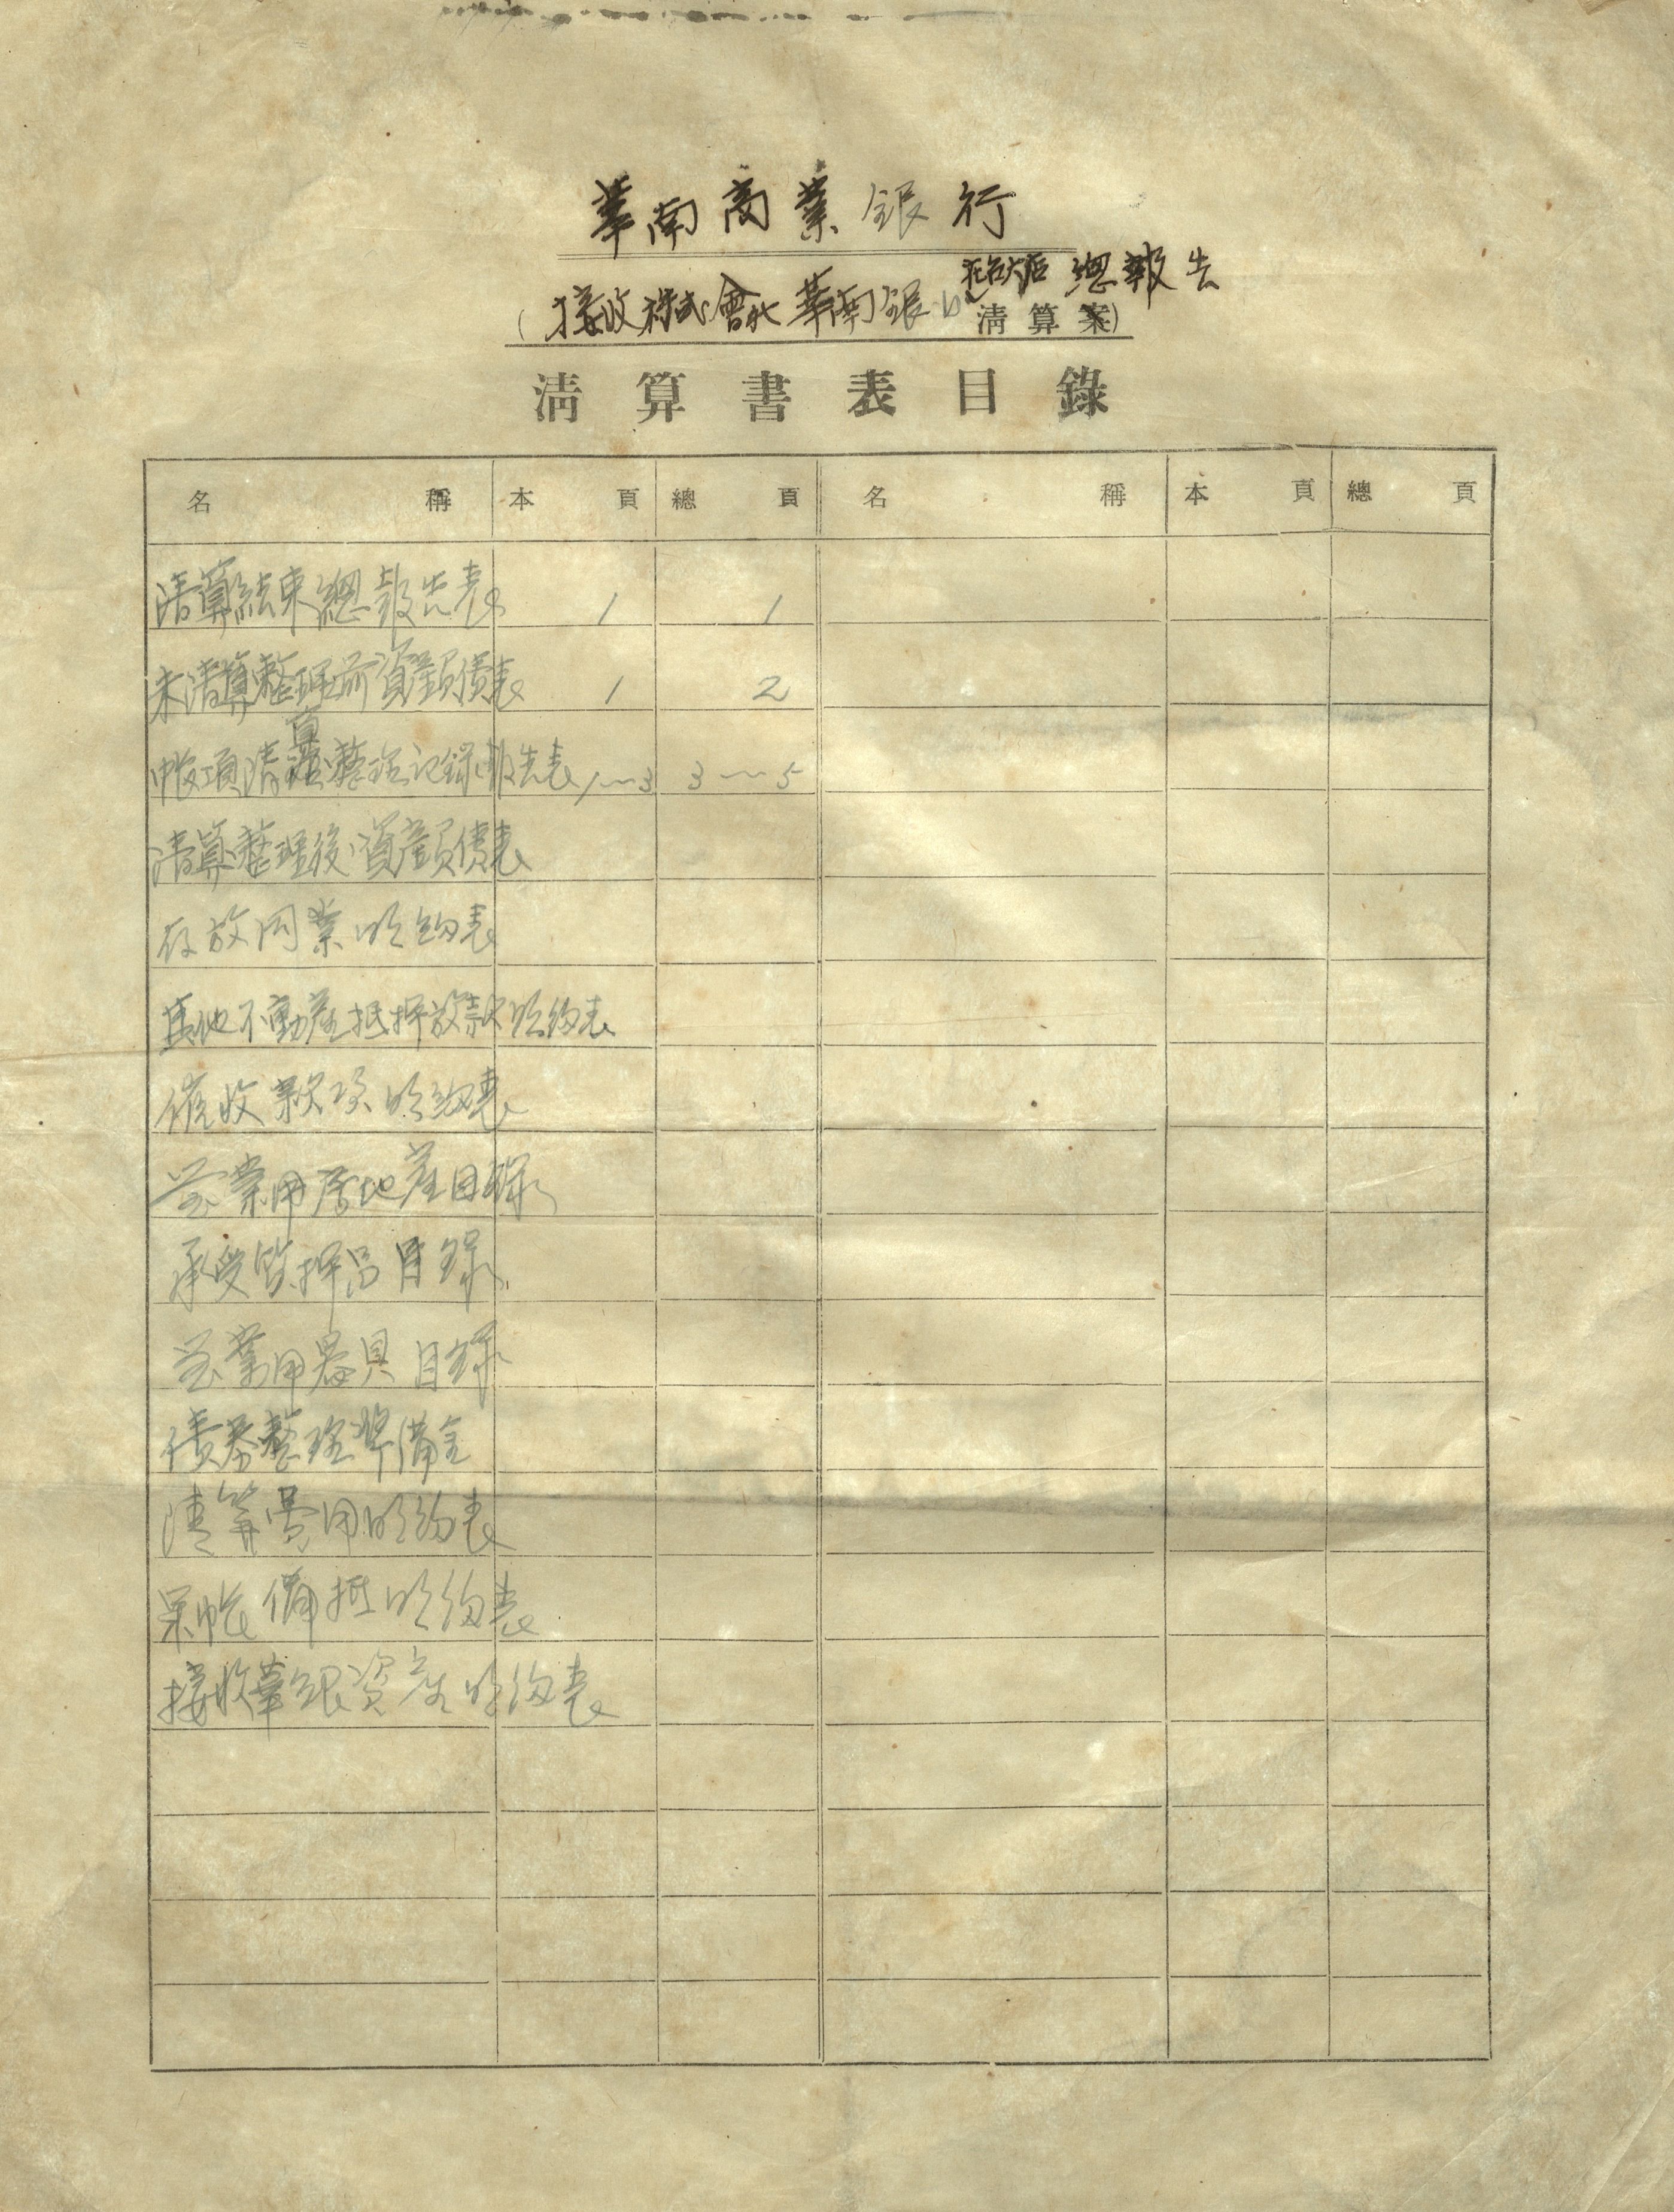 華南商業銀行
總報告
(接收株式會社華南銀行清算案)
清算書表目錄
名稱 本頁 總頁 名稱 本頁 總頁
清算結束總報告表 1 1
未清算整理前資產負債表 1 2
帳項清算整理記錄報告表 1~3 3~5
清算整理後資產負債表
存放同業明細表
其他不動產抵押放款明細表
催收款項明細表
营業用房地產目錄
承受質押品目錄
营業用器具目錄
債券整理準備金
清算費用明細表
呆帳備抵明細表
接收華銀資产明細表